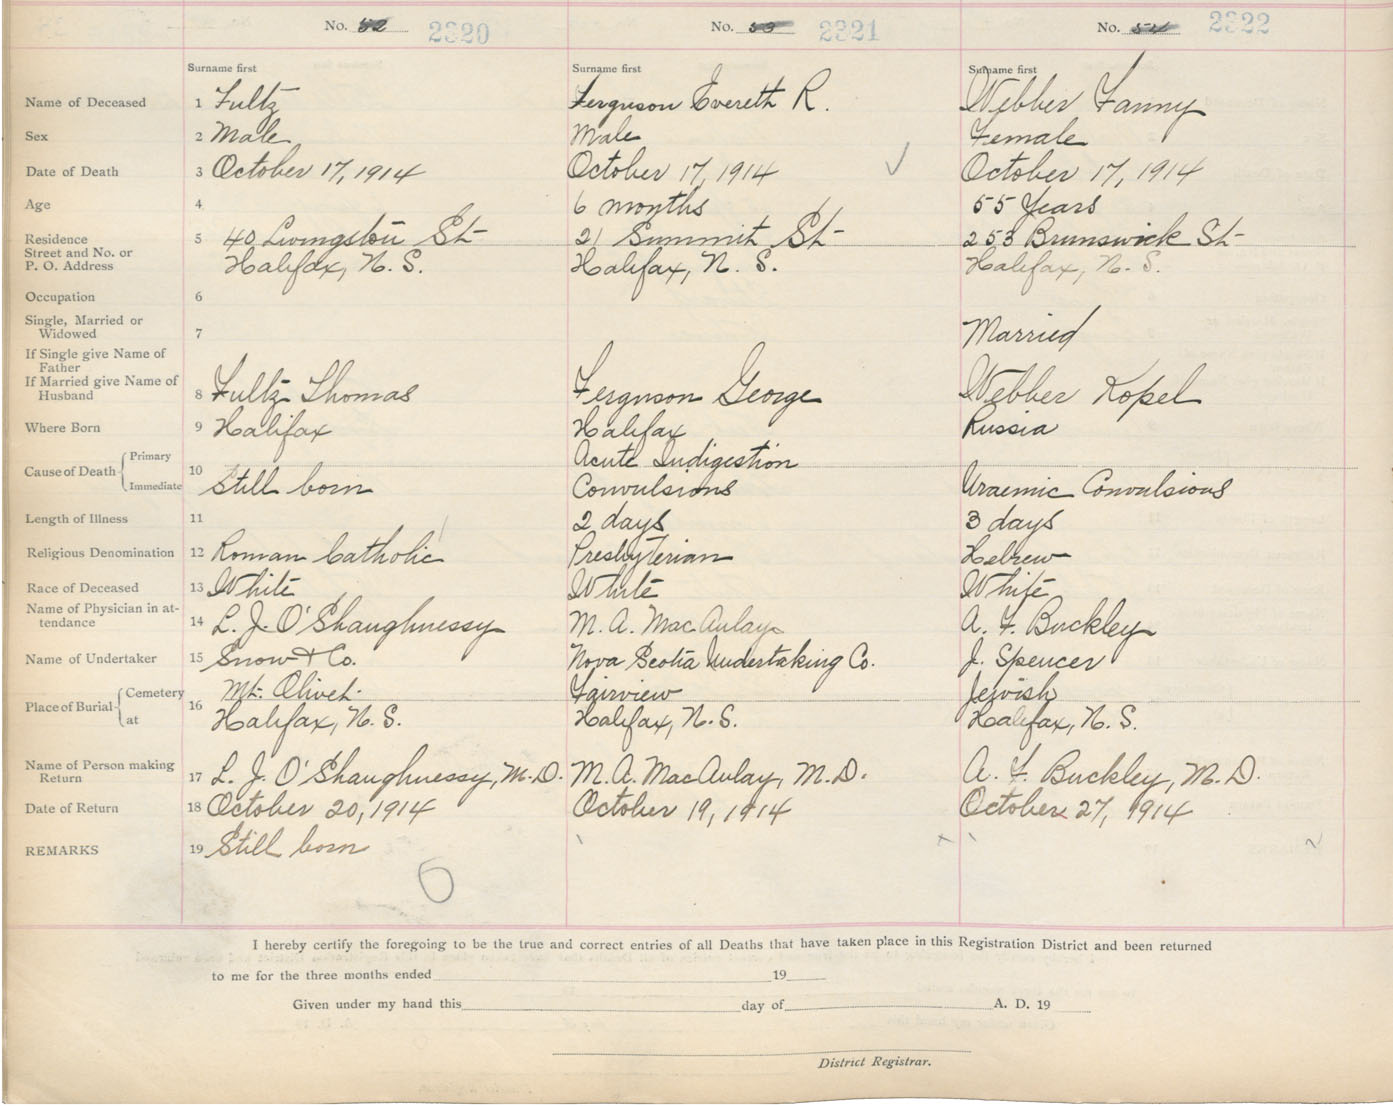 No. 52 2320 No. 53 2321 No. 54 2322
Surname first Surname first Surname first
Name of Deceased 1 Fultz Ferguson Evereth R. Webber Fanny
Sex 2 Male Male Female
Date of Death 3 October 17, 1914 October 17, 1914 October 17, 1914
Age 4 6 months 55 Years
Residence 5 40 Livingston St 21 Summit St 253 Brunswick St
Street and No. or
P. O. Address Halifax, N. S. Halifax, N. S. Halifax, N. S.
Occupation 6
Single, Married or
Widowed 7 Married
If Single give Name of
Father
If Married give Name of
Husband 8 Fultz Thomas Ferguson George Webber Kopel
Where Born 9 Halifax Halifax Russia
Primary Acute Indigestion
Cause of Death 10
Immediate Still born Convulsions Uraemic Convulsions
Length of Illness 11 2 days 3 days
Religious Denomination 12 Roman Catholic Presbyterian Hebrew
Race of Deceased 13 White White White
Name of Physician in at-
tendance 14 L. J. O'Shaughnessy M. A. MacAulay A. F. Buckley
Name of Undertaker 15 Snow & Co. Nova Scotia Undertaking Co. J. Spencer
Cemetery Mt. Olivet. Fairview Jewish
Place of Burial 16
at Halifax, N. S. Halifax, N. S. Halifax, N. S.
Name of Person making
Return 17 L. J. O'Shaughnessy, M.D. M. A. MacAulay, M.D. A. F. Buckley, M.D.
Date of Return 18 October 20, 1914 October 19, 1914 October 27, 1914
REMARKS 19 Still born
I hereby certify the foregoing to be the true and correct entries of all Deaths that have taken place in this Registration District and been returned
to me for the three months ended 19
Given under my hand this day of A. D. 19
District Registrar.